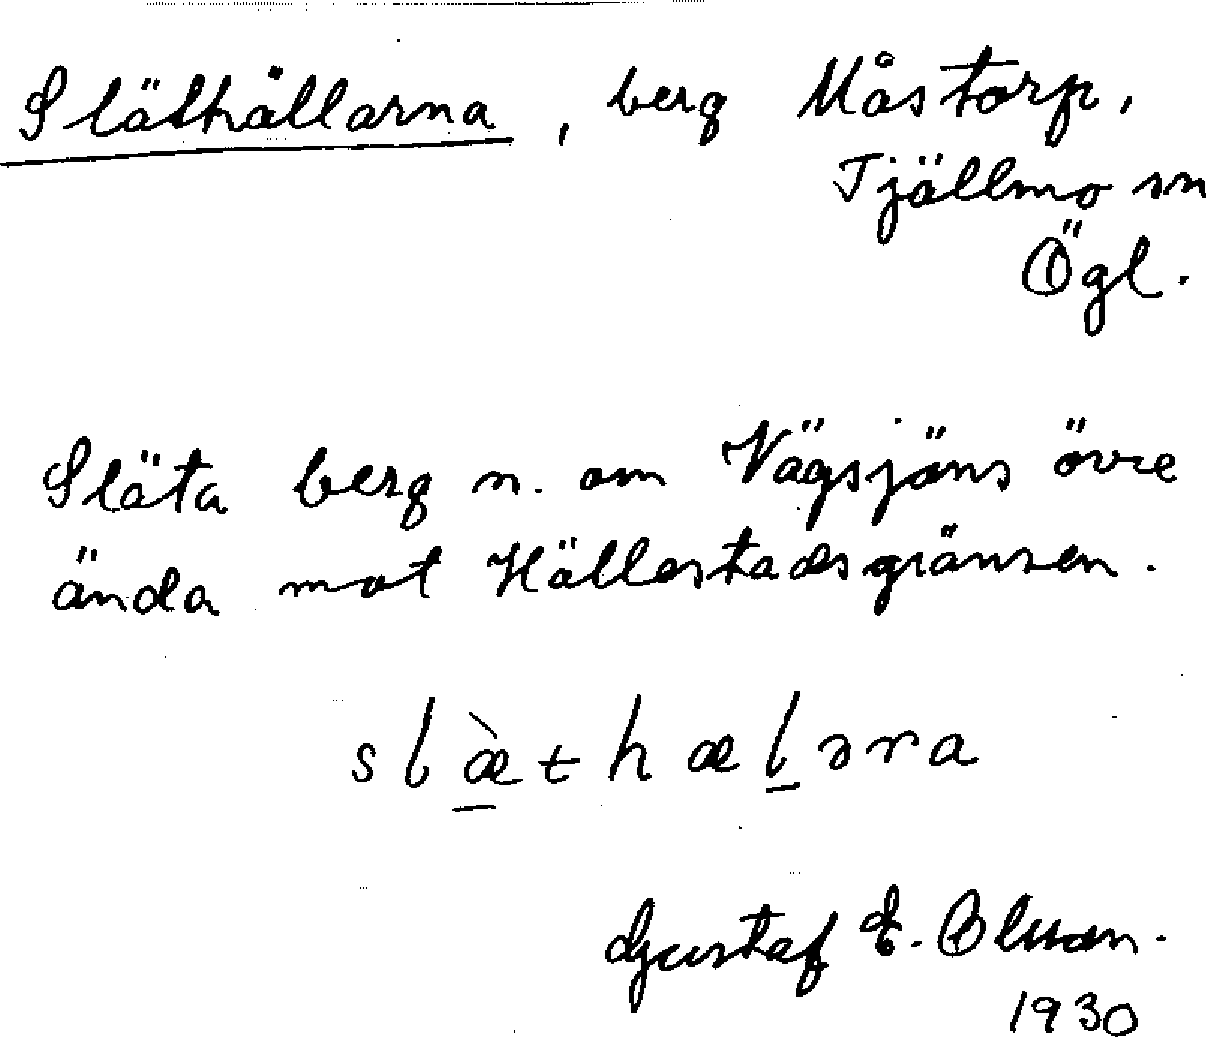 Släthällarna, berg Måstorp,
Tjällmo sn
Ögl.
Släta berg n. om Vägsjöns övre
ända mot Hällestadsgränsen.
slæ̀thælәra
Gustaf E. Olsson.
1930